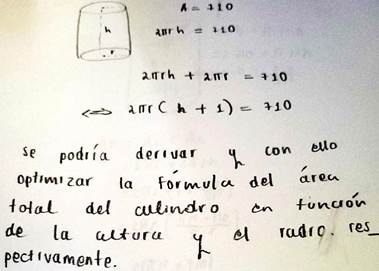 h
r
A = 710
2πrh = 710
2πrh + 2πr = 710
⟺ 2πr(h + 1) = 710
se podría derivar y con ello
optimizar la fórmula del área
total del cilindro en función
de la altura y el radio. res_
pectivamente.